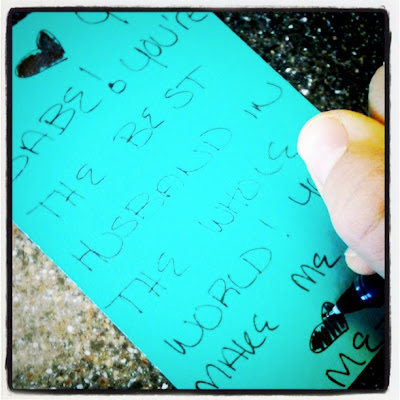 BABE! YOU'RE
THE BEST
HUSBAND IN
THE WHOLE
WORLD!
MAKE ME
ME